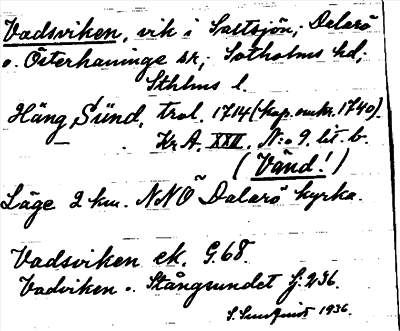 Vadsviken, vik i Saltsjön, Dalarö
o. Österhaninge sr, Sotholms hd,
Sthlms l.
Häng, Sünd, trol. 1714 (kop. omkr. 1740).
Kr. A. XXII. N:o 9. lit. b.
(Vänd!)
Läge 2 km. NNÖ Dalarö kyrka.
Vadsviken ek. G. 68.
Vadviken o. Stångsundet J: 236.
S. Sundquist 1936.